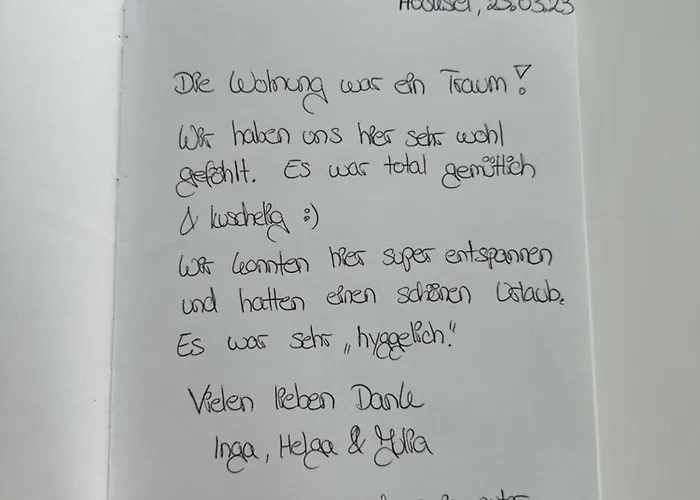 25.03.23
Die Wohnung war ein Traum!
Wir haben uns hier sehr wohl
gefühlt. Es war total gemütlich
& kuschelig :)
Wir konnten hier super entspannen
und hatten einen schönen Urlaub.
Es war sehr „hyggelich“
Vielen lieben Dank
Inga, Helga & Julia